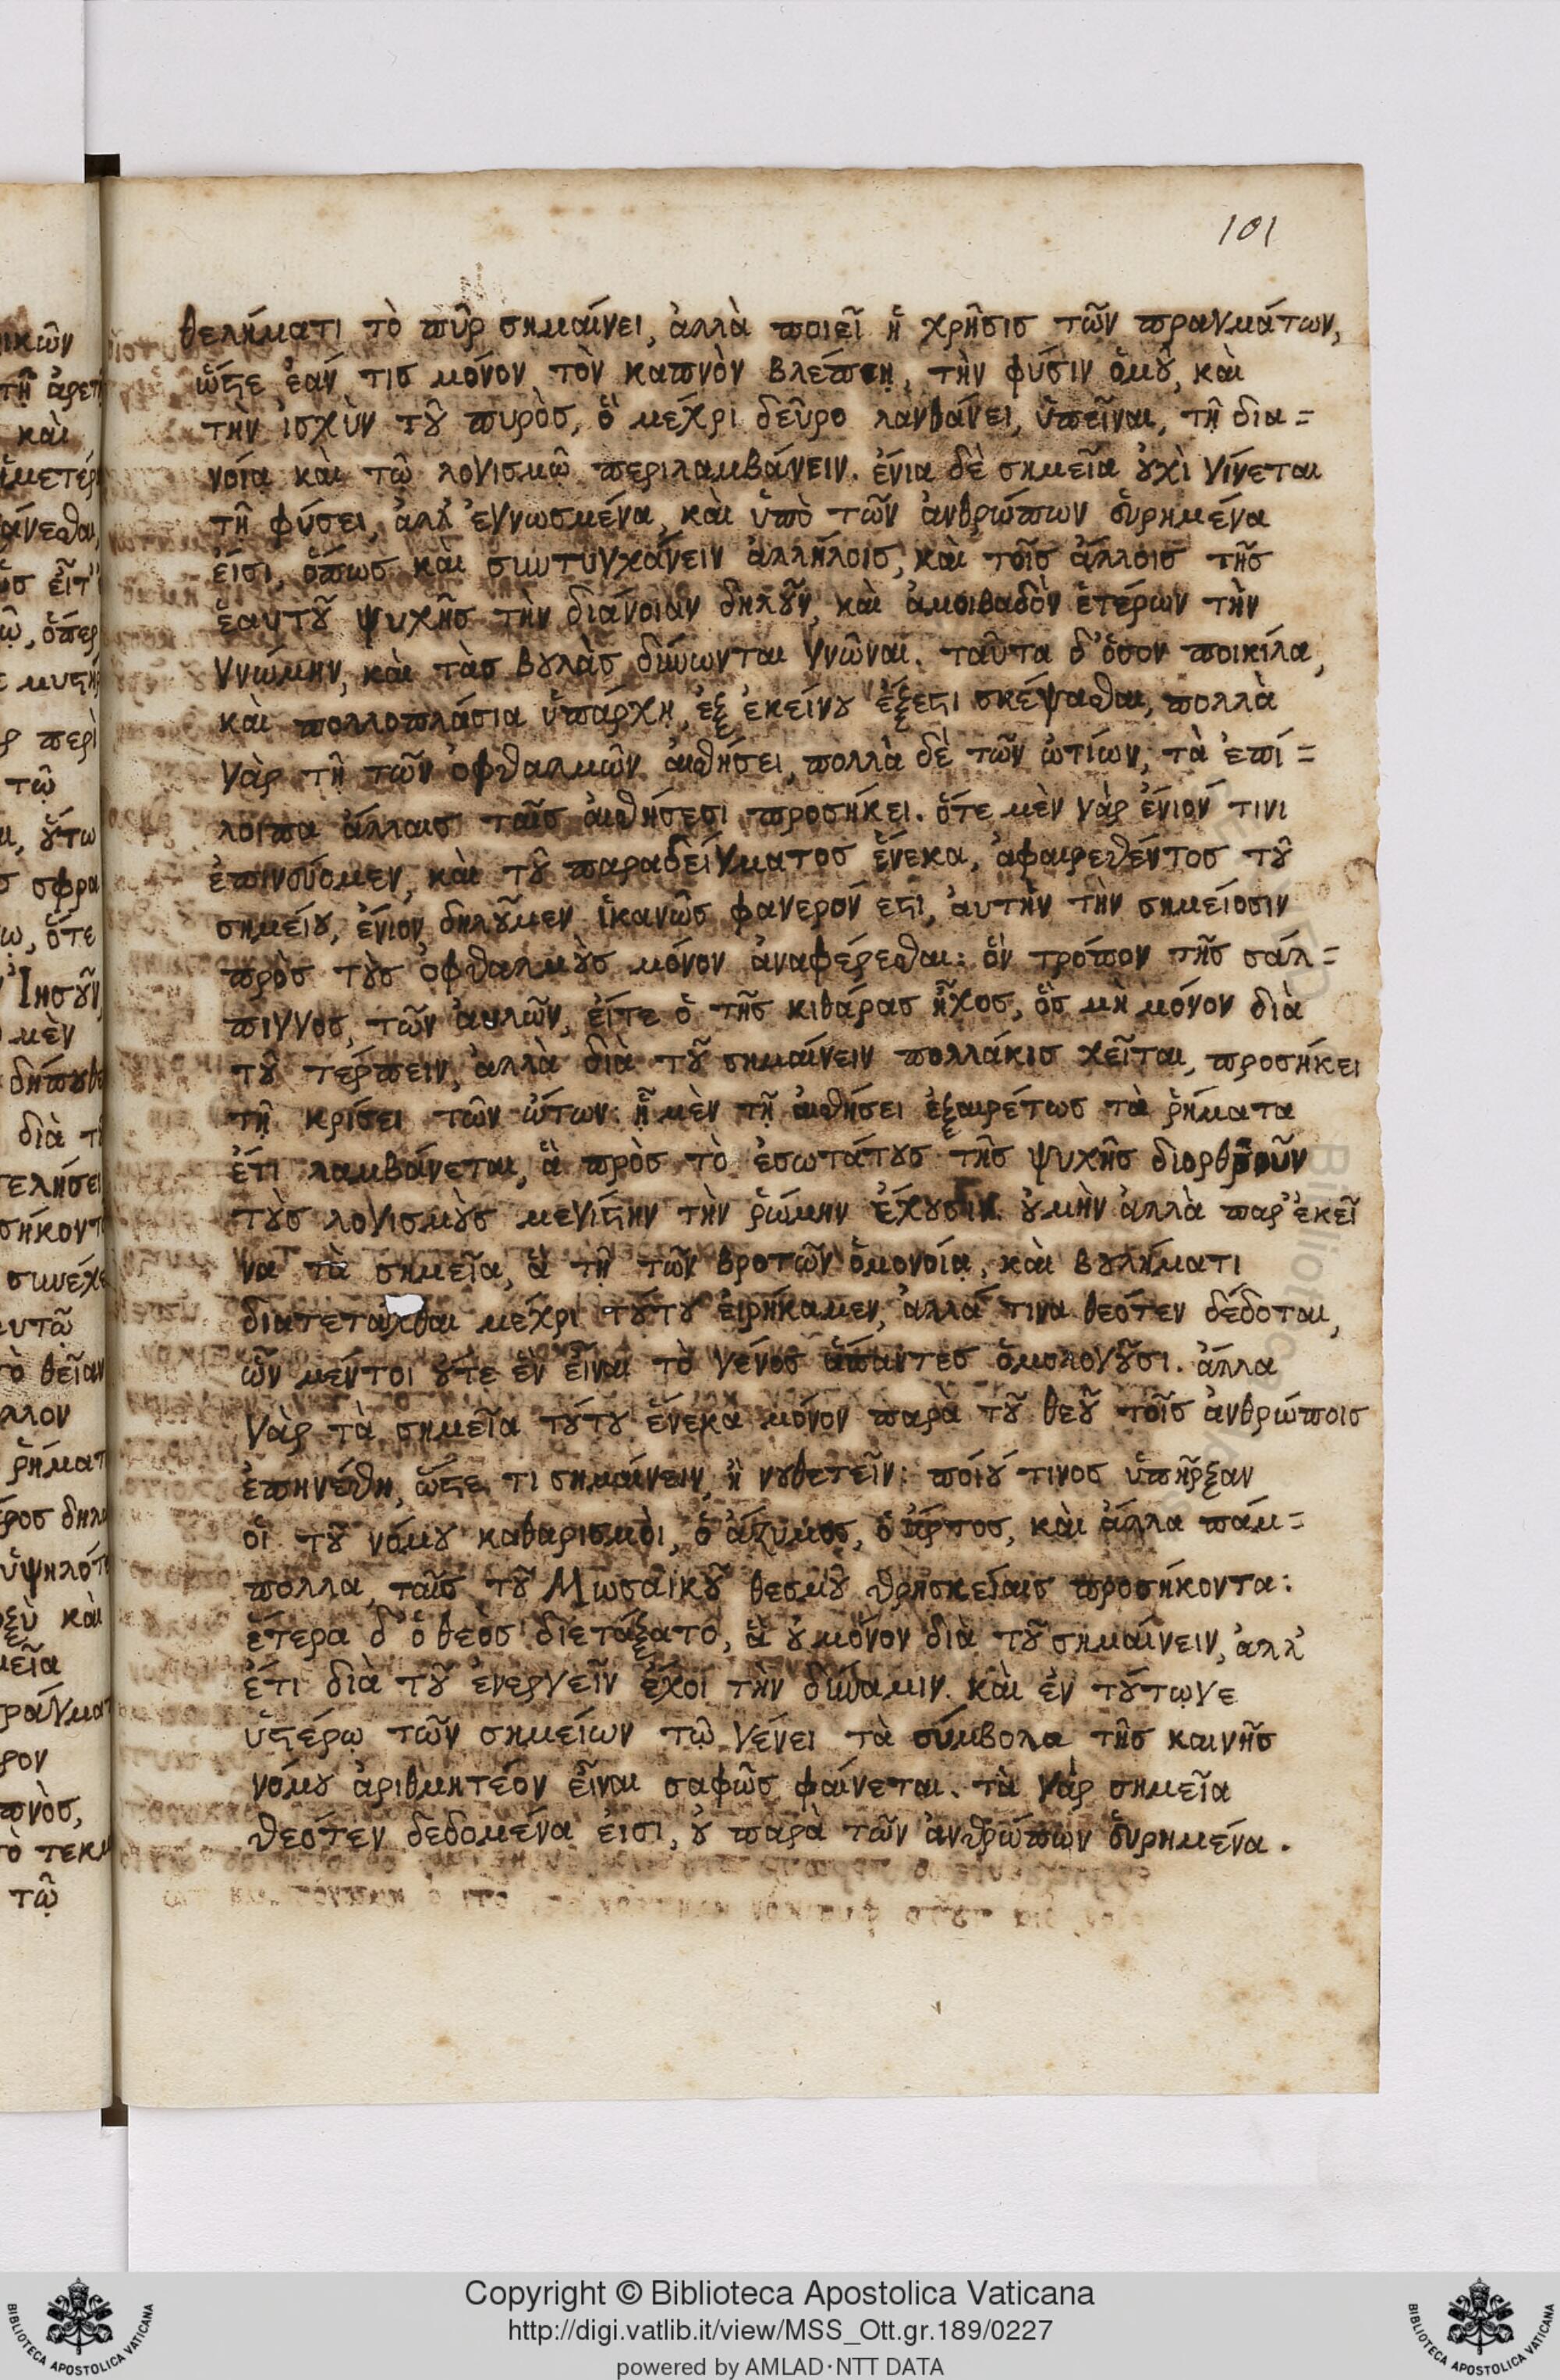 101
θελήματι τὸ πῦρ σημαίνει, ἀλλὰ ποιεῖ ἡ χρῆσις τῶν πραγμάτων,
ὥστε ἐάν τις μόνον τὸν καπνὸν βλέπῃ, τὴν φύσιν ὁμοῦ, καὶ
τὴν ἰσχὺν τοῦ πυρὸς, ὃ μέχρι δεῦρο λανθάνει, ὑπεῖναι, τῇ δια=
νοίᾳ καὶ τῷ λογισμῷ περιλαμβάνειν. ἔνια δὲ σημεῖα οὐχὶ γίνεται
τῇ φύσει, ἀλλ' ἐγνωσμένα, καὶ ὑπὸ τῶν ἀνθρώπων εὑρημένα
εἰσὶ, ὅπως καὶ συντυγχάνειν ἀλλήλοις, καὶ τοῖς ἄλλοις τῆς
ἑαυτοῦ ψυχῆς τὴν διάνοιαν δηλοῦν, καὶ ἀμοιβαδὸν ἑτέρων τὴν
γνώμην, καὶ τὰς βουλὰς δύνωνται γνῶναι. ταῦτα δ' ὅσον ποικίλα,
καὶ πολλοπλάσια ὑπάρχῃ, ἐξ ἐκείνου ἔξεστι σκέψασθαι, πολλὰ
γὰρ τῇ τῶν ὀφθαλμῶν αἰσθήσει, πολλὰ δὲ τῶν ὠτίων, τὰ ἐπί=
λοιπα ἄλλαις ταῖς αἰσθήσεσι προσήκει. ὅτε μὲν γὰρ ἔνιόν τινι
ἐπινεύομεν, καὶ τοῦ παραδείγματος ἕνεκα, ἀφαιρεθέντος τοῦ
σημείου, ἔνιον δηλοῦμεν, ἱκανῶς φανερόν ἐστι, αὐτὴν τὴν σημείοσιν
πρὸς τοὺς ὀφθαλμοὺς μόνον ἀναφέρεσθαι: ὃν τρόπον τῆς σάλ=
πιγγος, τῶν αὐλῶν, εἴτε ὁ τῆς κιθάρας ἦχος, ὃς μὴ μόνον διὰ
τοῦ τέρπειν, ἀλλὰ διὰ τοῦ σημαίνειν πολλάκις χεῖται, προσήκει
τῇ κρίσει τῶν ὤτων: ᾗ μὲν τῇ αἰσθήσει ἐξαιρέτως τὰ ῥήματα
ἔτι λαμβάνεται, ἃ πρὸς τὸ ἐσωτάτους τῆς ψυχῆς διορθροῦν
τοὺς λογισμοὺς μεγίστην τὴν ῥώμην ἔχουσιν. οὐ μὴν ἀλλὰ παρ' ἐκεῖ
να τὰ σημεῖα, ἃ τῇ τῶν βροτῶν ὁμονοίᾳ, καὶ βουλήματι
διατετάχθαι μέχρι τούτου εἰρήκαμεν, ἀλλά τινα θεότεν δέδοται,
ὧν μέντοι οὔτε ἓν εἶναι τὸ γένος ἅπαντες ὁμολογοῦσι. ἄλλα
γὰρ τὰ σημεῖα τούτου ἕνεκα μόνον παρὰ τοῦ θεοῦ τοῖς ἀνθρώποις
ἐπηνέχθη, ὥστε τι σημαίνειν, ἢ νουθετεῖν: ποίου τινος ὑπῆρξαν
οἱ τοῦ νόμου καθαρισμοὶ, ὁ ἄζυμος, ὁ ἄρτος, καὶ ἄλλα πάμ=
πολλα, ταῖς τοῦ Μωσαϊκοῦ θεσμοῦ θρησκείαις προσήκοντα:
ἕτερα δ' ὁ θεὸς διετάξατο, ἃ οὐ μόνον διὰ τοῦ σημαίνειν, ἀλλ'
ἔτι διὰ τοῦ ἐνεργεῖν ἔχοι τὴν δύναμιν. καὶ ἐν τούτῳγε
ὑστέρῳ τῶν σημείων τῷ γένει τὰ σύμβολα τῆς καινῆς
νόμου ἀριθμητέον εἶναι σαφῶς φαίνεται. τὰ γὰρ σημεῖα
θεότεν δεδομένα εἰσὶ, οὐ παρὰ τῶν ἀνθρώπων εὑρημένα.
Copyright © Biblioteca Apostolica Vaticana
http://digi.vatlib.it/view/MSS_Ott.gr.189/0227
powered by AMLAD·NTT DATA
BIBLIOTECA APOSTOLICA VATICANA
BIBLIOTECA APOSTOLICA VATICANA